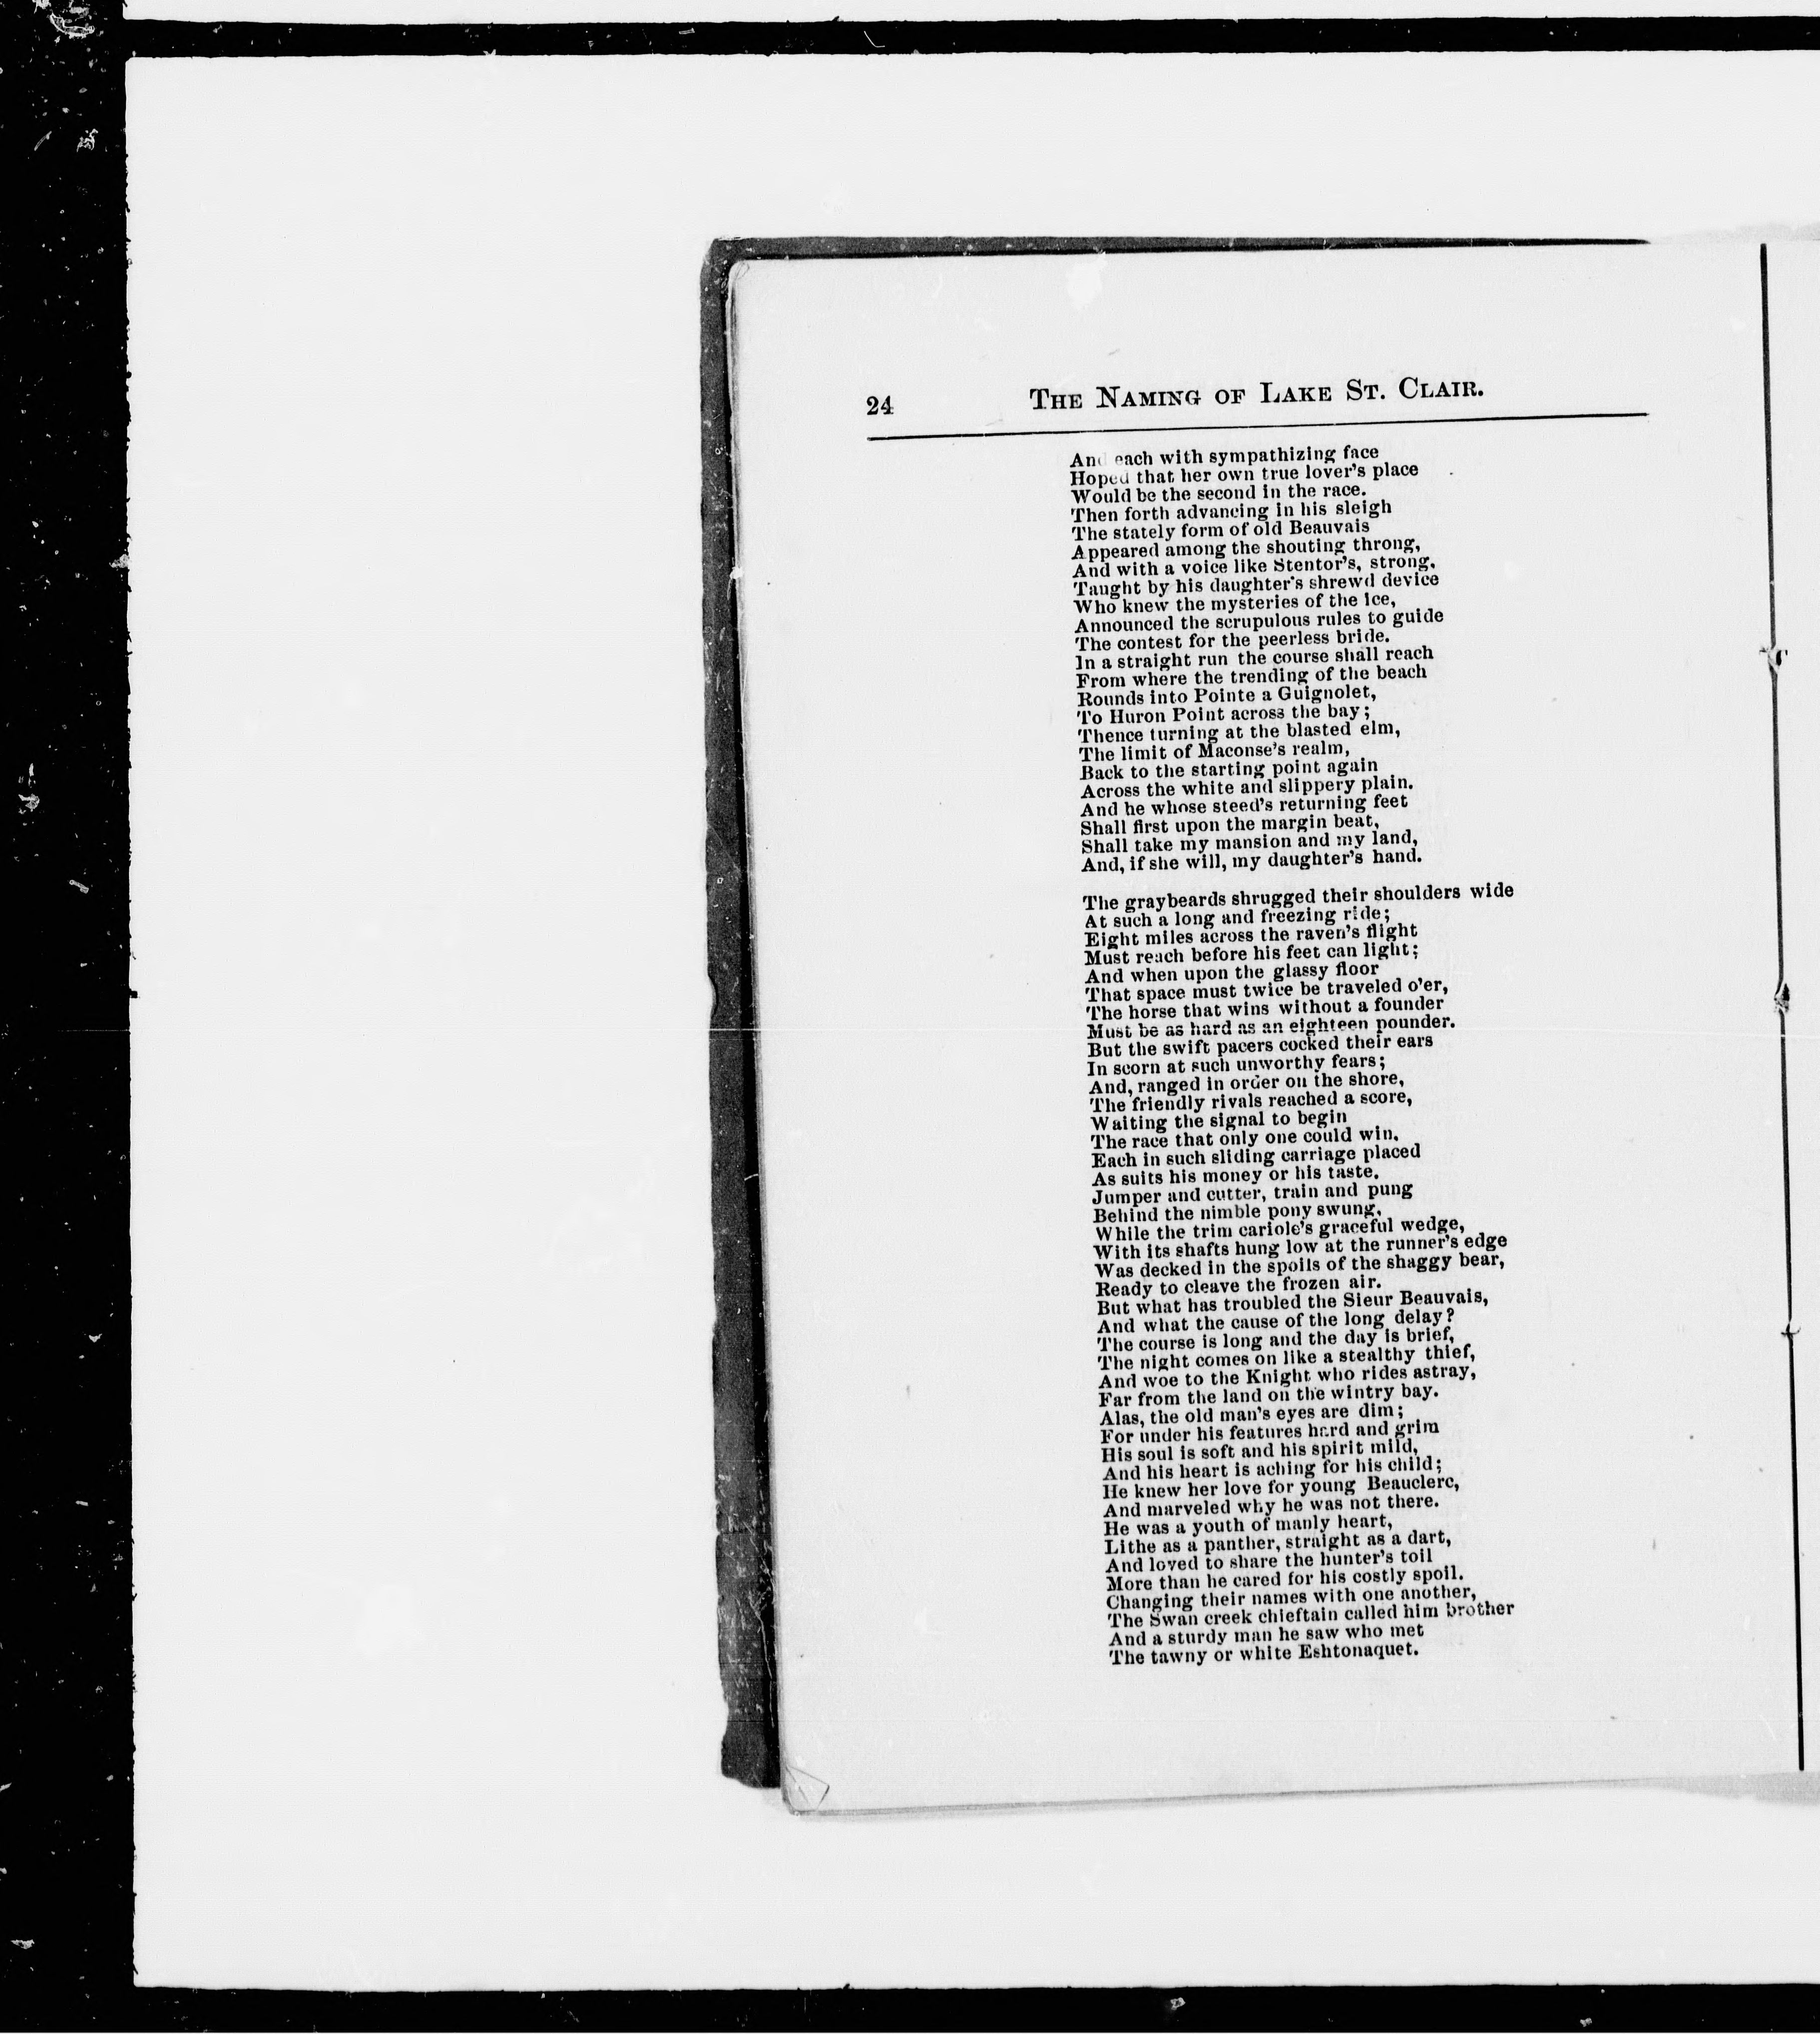 24
THE NAMING OF LAKE ST. CLAIR.
And each with sympathizing face
Hoped that her own true lover's place
Would be the second in the race.
Then forth advancing in his sleigh
The stately form of old Beauvais
Appeared among the shouting throng,
And with a voice like Stentor's, strong,
Taught by his daughter's shrewd device
Who knew the mysteries of the ice,
Announced the scrupulous rules to guide
The contest for the peerless bride.
In a straight run the course shall reach
From where the trending of the beach
Rounds into Pointe a Guignolet,
To Huron Point across the bay;
Thence turning at the blasted elm,
The limit of Maconse's realm,
Back to the starting point again
Across the white and slippery plain.
And he whose steed's returning feet
Shall first upon the margin beat,
Shall take my mansion and my land,
And, if she will, my daughter's hand.
The graybeards shrugged their shoulders wide
At such a long and freezing ride;
Eight miles across the raven's flight
Must reach before his feet can light;
And when upon the glassy floor
That space must twice be traveled o'er,
The horse that wins without a founder
Must be as hard as an eighteen pounder.
But the swift pacers cocked their ears
In scorn at such unworthy fears;
And, ranged in order on the shore,
The friendly rivals reached a score,
Waiting the signal to begin
The race that only one could win.
Each in such sliding carriage placed
As suits his money or his taste.
Jumper and cutter, train and pung
Behind the nimble pony swung,
While the trim cariole's graceful wedge,
With its shafts hung low at the runner's edge
Was decked in the spoils of the shaggy bear,
Ready to cleave the frozen air.
But what has troubled the Sieur Beauvais,
And what the cause of the long delay?
The course is long and the day is brief,
The night comes on like a stealthy thief,
And woe to the Knight who rides astray,
Far from the land on the wintry bay.
Alas, the old man's eyes are dim;
For under his features hard and grim
His soul is soft and his spirit mild,
And his heart is aching for his child;
He knew her love for young Beauclerc,
And marveled why he was not there.
He was a youth of manly heart,
Lithe as a panther, straight as a dart,
And loved to share the hunter's toil
More than he cared for his costly spoil.
Changing their names with one another,
The Swan creek chieftain called him brother
And a sturdy man he saw who met
The tawny or white Eshtonaquet.